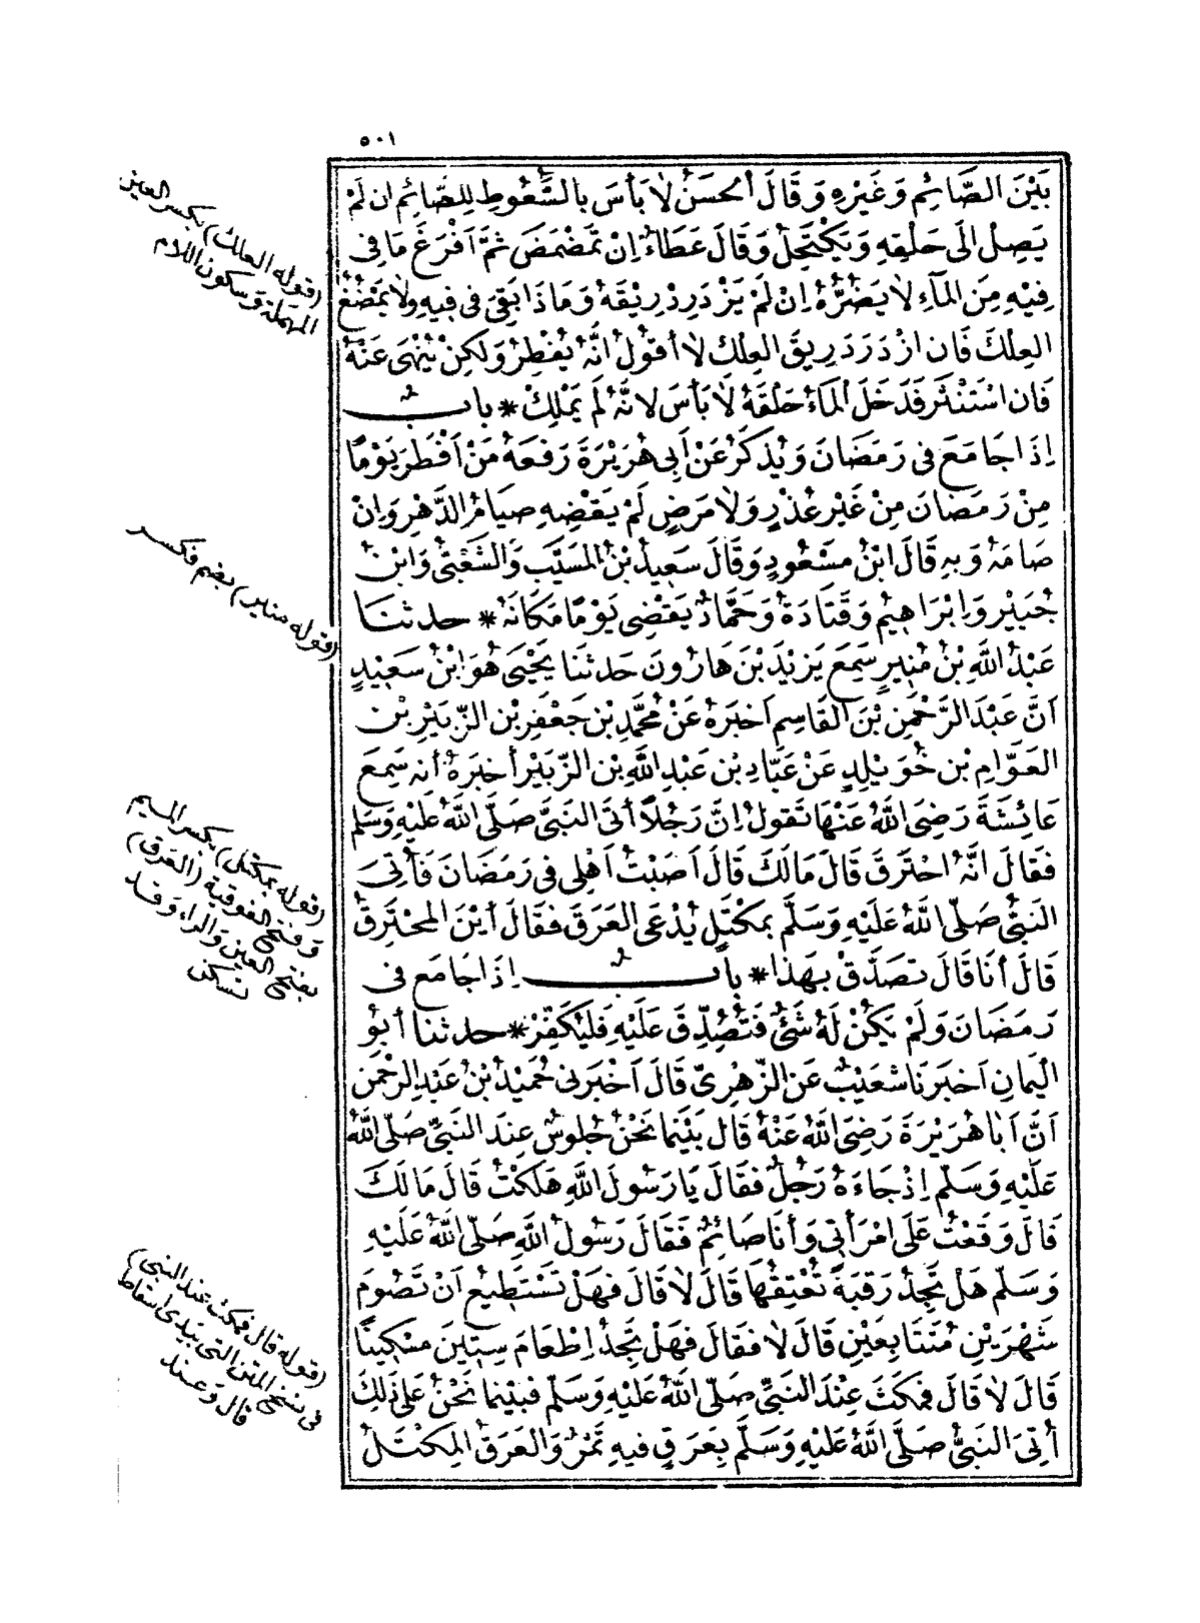 ٥٠١
بَيْنَ الصَّائِمِ وَغَيْرِهِ وَقَالَ الْحَسَنُ لَا بَأْسَ بِالسَّعُوطِ لِلصَّائِمِ إِنْ لَمْ
يَصِلْ إِلَى حَلْقِهِ وَيَكْتَحِلُ وَقَالَ عَطَاءٌ إِنْ تَمَضْمَضَ ثُمَّ أَفْرَغَ مَا فِي
فِيْهِ مِنَ الْمَآءِ لَا يَضُرُّهُ إِنْ لَمْ يَزْدَرِدْ رِيقَهُ وَمَاذَا بَقِيَ فِي فِيهِ وَلَا يَمْضَغُ
الْعِلْكَ فَإِنِ ازْدَرَدَ رِيقَ الْعِلْكِ لَا أَقُولُ إِنَّهُ يُفْطِرُ وَلَكِنْ يُنْهَى عَنْهُ
فَإِنِ اسْتَنْثَرَ فَدَخَلَ الْمَاءُ حَلْقَهُ لَا بَأْسَ لِأَنَّهُ لَمْ يَمْلِكْ * بَابُ
إِذَا جَامَعَ فِي رَمَضَانَ وَيُذْكَرُ عَنْ أَبِي هُرَيْرَةَ رَفَعَهُ مَنْ أَفْطَرَ يَوْمًا
مِنْ رَمَضَانَ مِنْ غَيْرِ عُذْرٍ وَلَا مَرَضٍ لَمْ يَقْضِهِ صِيَامُ الدَّهْرِ وَإِنْ
صَامَهُ وَبِهِ قَالَ ابْنُ مَسْعُودٍ وَقَالَ سَعِيدُ بْنُ الْمُسَيَّبِ وَالشَّعْبِيُّ وَابْنُ
جُبَيْرٍ وَإِبْرَاهِيمُ وَقَتَادَةُ وَحَمَّادٌ يَقْضِي يَوْمًا مَكَانَهُ * حدثنا
عَبْدُ اللَّهِ بْنُ مُنِيرٍ سَمِعَ يَزِيدَ بْنَ هَارُونَ حَدثَنَا يَحْيَى هُوَ ابْنُ سَعِيدٍ
أَنَّ عَبْدَ الرَّحْمَنِ بْنَ الْقَاسِمِ أَخْبَرَهُ عَنْ مُحَمَّدِ بْنِ جَعْفَرِ بْنِ الزُّبَيْرِ بْنِ
الْعَوَّامِ بْنِ خُوَيْلِدٍ عَنْ عَبَّادِ بْنِ عَبْدِ اللَّهِ بْنِ الزُّبَيْرِ أَخْبَرَهُ أَنَّهُ سَمِعَ
عَائِشَةَ رَضِيَ اللَّهُ عَنْهَا تَقُولُ إِنَّ رَجُلًا أَتَى النَّبِيَّ صَلَّى اللَّهُ عَلَيْهِ وَسَلَّمَ
فَقَالَ إِنَّهُ احْتَرَقَ قَالَ مَالَكَ قَالَ أَصَبْتُ أَهْلِي فِي رَمَضَانَ فَأُتِيَ
النَّبِيُّ صَلَّى اللَّهُ عَلَيْهِ وَسَلَّمَ بِمِكْتَلٍ يُدْعَى الْعَرَقَ فَقَالَ أَيْنَ الْمُحْتَرِقُ
قَالَ أَنَا قَالَ تَصَدَّقْ بِهَذَا * بَابُ إِذَا جَامَعَ فِي
رَمَضَانَ وَلَمْ يَكُنْ لَهُ شَيْءٌ فَتُصُدِّقَ عَلَيْهِ فَلْيُكَفِّرْ * حدثنا أَبُو
الْيَمَانِ أَخْبَرَنَا شُعَيْبٌ عَنِ الزُّهْرِيِّ قَالَ أَخْبَرَنِي حُمَيْدُ بْنُ عَبْدِ الرَّحْمَنِ
أَنَّ أَبَا هُرَيْرَةَ رَضِيَ اللَّهُ عَنْهُ قَالَ بَيْنَمَا نَحْنُ جُلُوسٌ عِنْدَ النَّبِيِّ صَلَّى اللَّهُ
عَلَيْهِ وَسَلَّمَ إِذْ جَاءَهُ رَجُلٌ فَقَالَ يَا رَسُولَ اللَّهِ هَلَكْتُ قَالَ مَا لَكَ
قَالَ وَقَعْتُ عَلَى امْرَأَتِي وَأَنَا صَائِمٌ فَقَالَ رَسُولُ اللَّهِ صَلَّى اللَّهُ عَلَيْهِ
وَسَلَّمَ هَلْ تَجِدُ رَقَبَةً تُعْتِقُهَا قَالَ لَا قَالَ فَهَلْ تَسْتَطِيعُ أَنْ تَصُومَ
شَهْرَيْنِ مُتَتَابِعَيْنِ قَالَ لَا فَقَالَ فَهَلْ تَجِدُ إِطْعَامَ سِتِّينَ مِسْكِينًا
قَالَ لَا قَالَ فَمَكَثَ عِنْدَ النَّبِيِّ صَلَّى اللَّهُ عَلَيْهِ وَسَلَّمَ فَبَيْنَمَا نَحْنُ عَلَى ذَلِكَ
أُتِيَ النَّبِيُّ صَلَّى اللَّهُ عَلَيْهِ وَسَلَّمَ بِعَرَقٍ فِيهِ تَمْرٌ وَالْعَرَقُ الْمِكْتَلُ
(قوله العلك) بكسر العين
المهملة وسكون اللام
(قوله منير) بضم فكسر
(قوله بمكتل) بكسر الميم
وفتح الفوقية (العرق)
بفتح العين والراء وقد
تسكن
(قوله قال فمكث عند النبي)
في نسخ المتن التي بيدي اسقاط
قال وعند